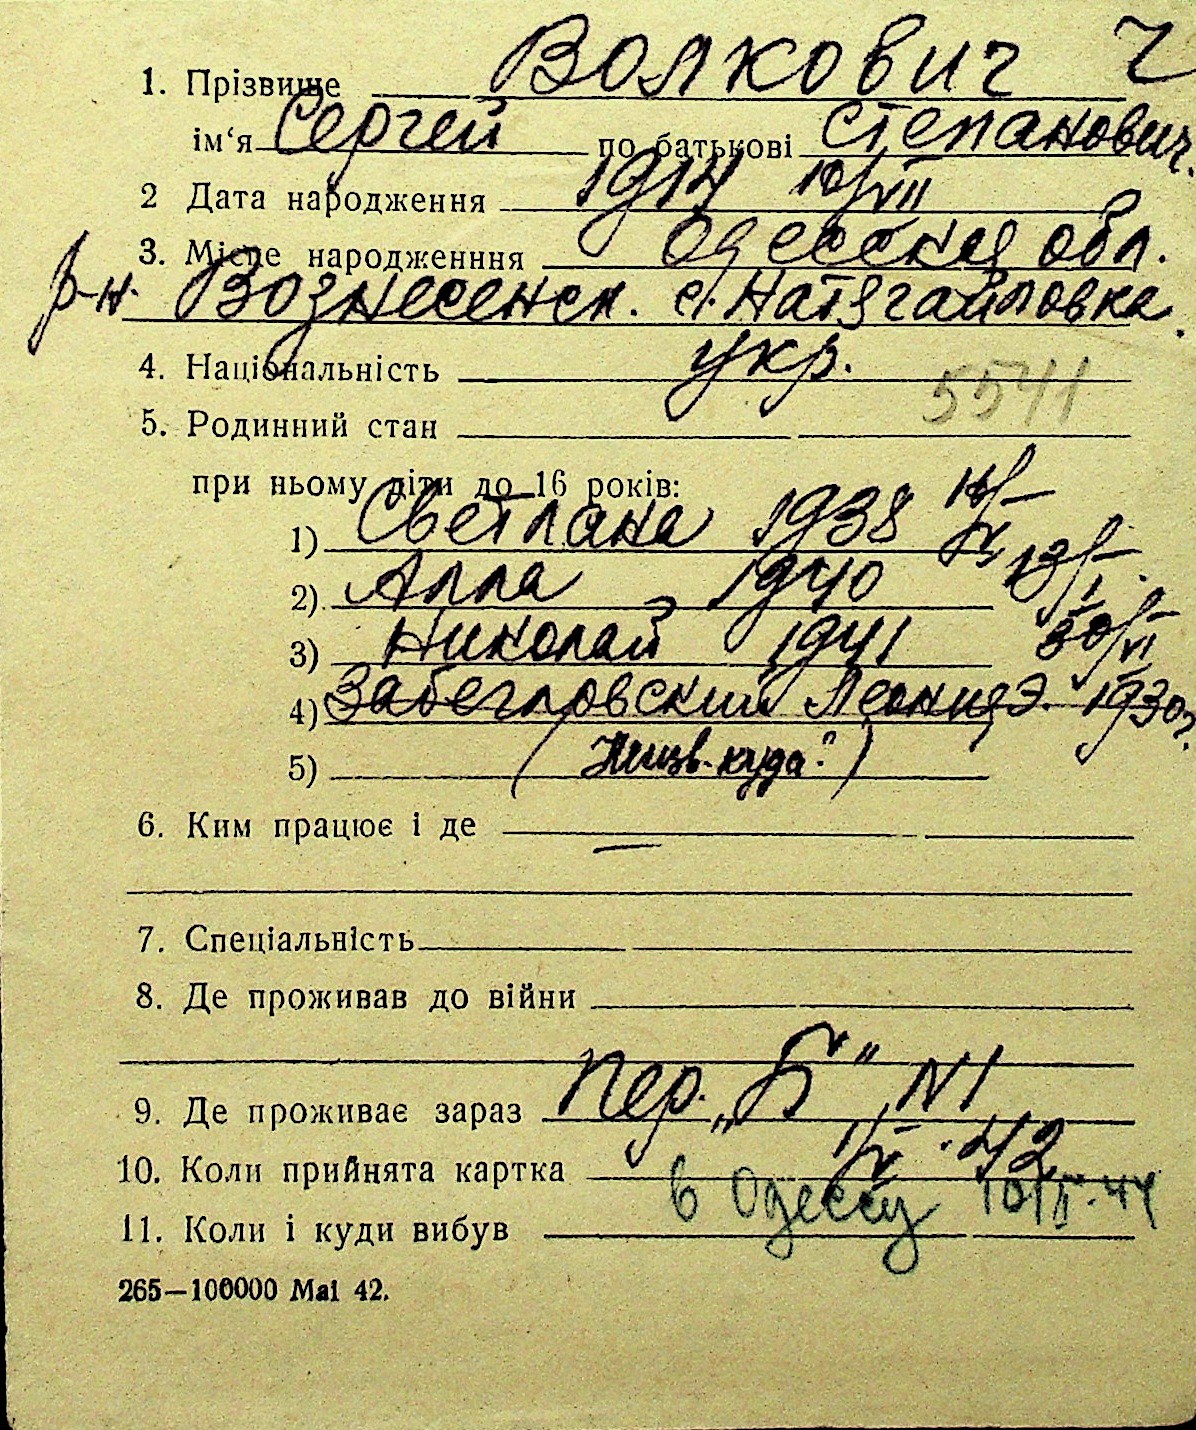 1. Прізвище Волкович
ім‘я Сергей по батькові Степанович.
2 Дата народження 1914 10/VII
3. Місце народженння Одесская обл.
р-н. Вознесенск. с. Натягайловка.
4. Національність укр.
5541
5. Родинний стан
при ньому діти до 16 років:
1) Светлана 1938
2) Алла 1940 13/I.
3) Николай 1941 30/VI
4) Забегловский Леонид Э. 1930г.
5) ( куда? )
6. Ким працює і де —
7. Спеціальність
8. Де проживав до війни
9. Де проживає зараз пер. „Б“ N1
10. Коли прийнята картка 42
11. Коли і куди вибув в Одессу 44
265—100000 Маі 42.